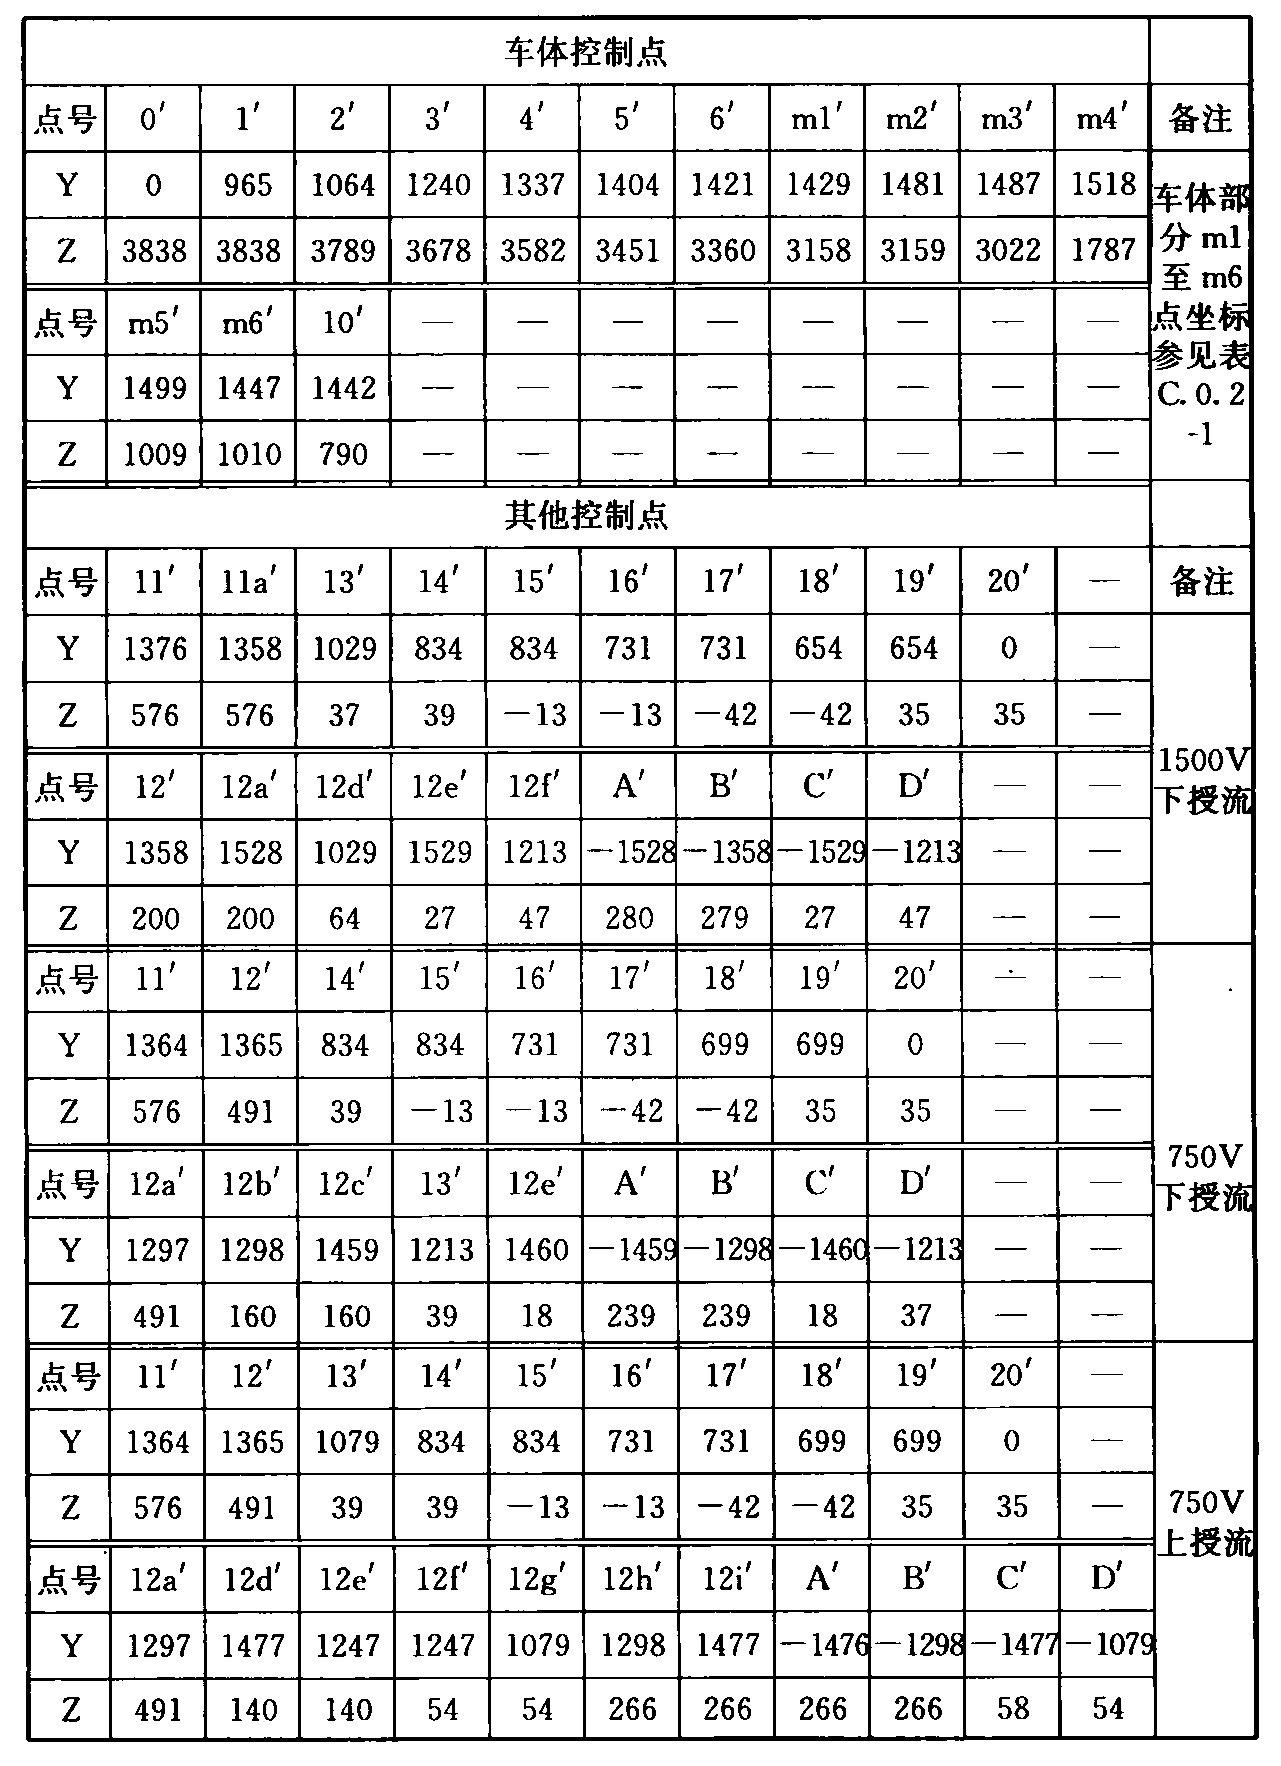 车体控制点
点号 0′ 1′ 2′ 3′ 4′ 5′ 6′ m1′ m2′ m3′ m4′ 备注
Y 0 965 1064 1240 1337 1404 1421 1429 1481 1487 1518
Z 3838 3838 3789 3678 3582 3451 3360 3158 3159 3022 1787
点号 m5′ m6′ 10′ — — — — — — — —
Y 1499 1447 1442 — — — — — — — —
Z 1009 1010 790 — — — — — — — —
车体部
分 m1
至 m6
点坐标
参见表
C. 0. 2
-1
其他控制点
点号 11′ 11a′ 13′ 14′ 15′ 16′ 17′ 18′ 19′ 20′ — 备注
Y 1376 1358 1029 834 834 731 731 654 654 0 —
Z 576 576 37 39 —13 —13 —42 —42 35 35 —
点号 12′ 12a′ 12d′ 12e′ 12f′ A′ B′ C′ D′ — —
Y 1358 1528 1029 1529 1213 —1528 —1358 —1529 —1213 — —
Z 200 200 64 27 47 280 279 27 47 — —
1500V
下授流
点号 11′ 12′ 14′ 15′ 16′ 17′ 18′ 19′ 20′ — —
Y 1364 1365 834 834 731 731 699 699 0 — —
Z 576 491 39 —13 —13 —42 —42 35 35 — —
点号 12a′ 12b′ 12c′ 13′ 12e′ A′ B′ C′ D′ — —
Y 1297 1298 1459 1213 1460 —1459 —1298 —1460 —1213 — —
Z 491 160 160 39 18 239 239 18 37 — —
750V
下授流
点号 11′ 12′ 13′ 14′ 15′ 16′ 17′ 18′ 19′ 20′ —
Y 1364 1365 1079 834 834 731 731 699 699 0 —
Z 576 491 39 39 —13 —13 —42 —42 35 35 —
点号 12a′ 12d′ 12e′ 12f′ 12g′ 12h′ 12i′ A′ B′ C′ D′
Y 1297 1477 1247 1247 1079 1298 1477 —1476 —1298 —1477 —1079
Z 491 140 140 54 54 266 266 266 266 58 54
750V
上授流